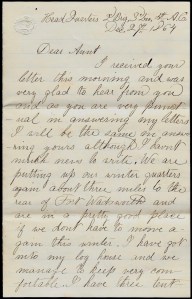 Head Quarters
Dec 27th 1864
Dear Aunt
I received your
letter this morning and was
very glad to hear from you
and as you are very punct
-ual in answering my letters
I will be the same in answ
ering yours although I havnt
much news to write. We are
putting up our winter quarters
again about three miles to the
rear of Fort Wadsworth and
are in a pretty good place
if we dont have to move a
gain this winter. I have got
into my log house and we
manage to keep very com
fortable. I have three tent